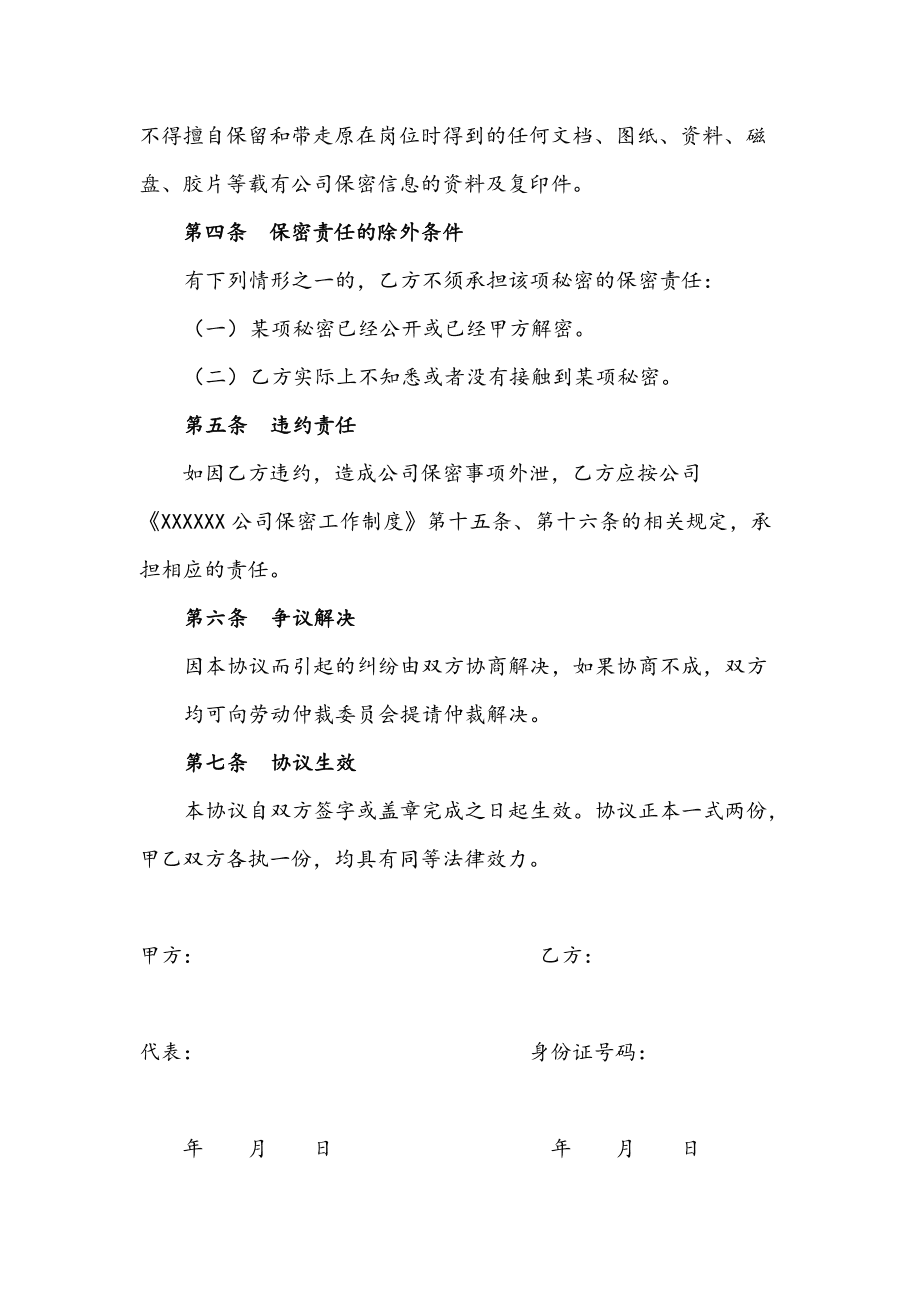 不得擅自保留和带走原在岗位时得到的任何文档、图纸、资料、磁
盘、胶片等载有公司保密信息的资料及复印件。
第四条　保密责任的除外条件
有下列情形之一的，乙方不须承担该项秘密的保密责任：
（一）某项秘密已经公开或已经甲方解密。
（二）乙方实际上不知悉或者没有接触到某项秘密。
第五条　违约责任
如因乙方违约，造成公司保密事项外泄，乙方应按公司
《XXXXXX 公司保密工作制度》第十五条、第十六条的相关规定，承
担相应的责任。
第六条　争议解决
因本协议而引起的纠纷由双方协商解决，如果协商不成，双方
均可向劳动仲裁委员会提请仲裁解决。
第七条　协议生效
本协议自双方签字或盖章完成之日起生效。协议正本一式两份，
甲乙双方各执一份，均具有同等法律效力。
甲方：　　　　　　　　乙方：
代表：　　　　　　　　身份证号码：
年　　月　　日　　　　　　　　年　　月　　日